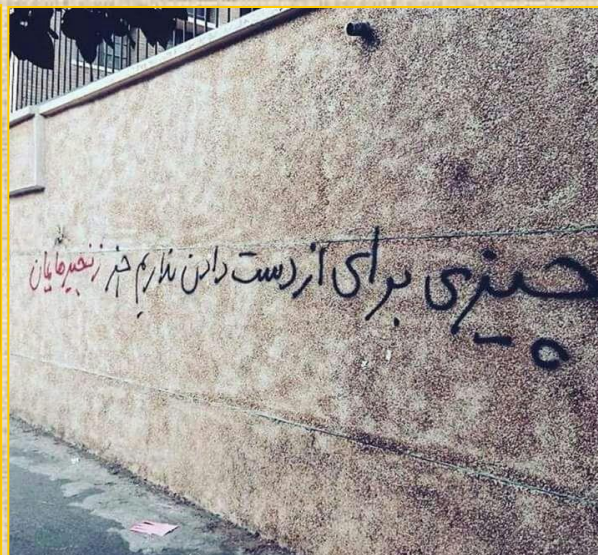 چیزی برای از دست دادن نداریم جز زنجیرهایمان